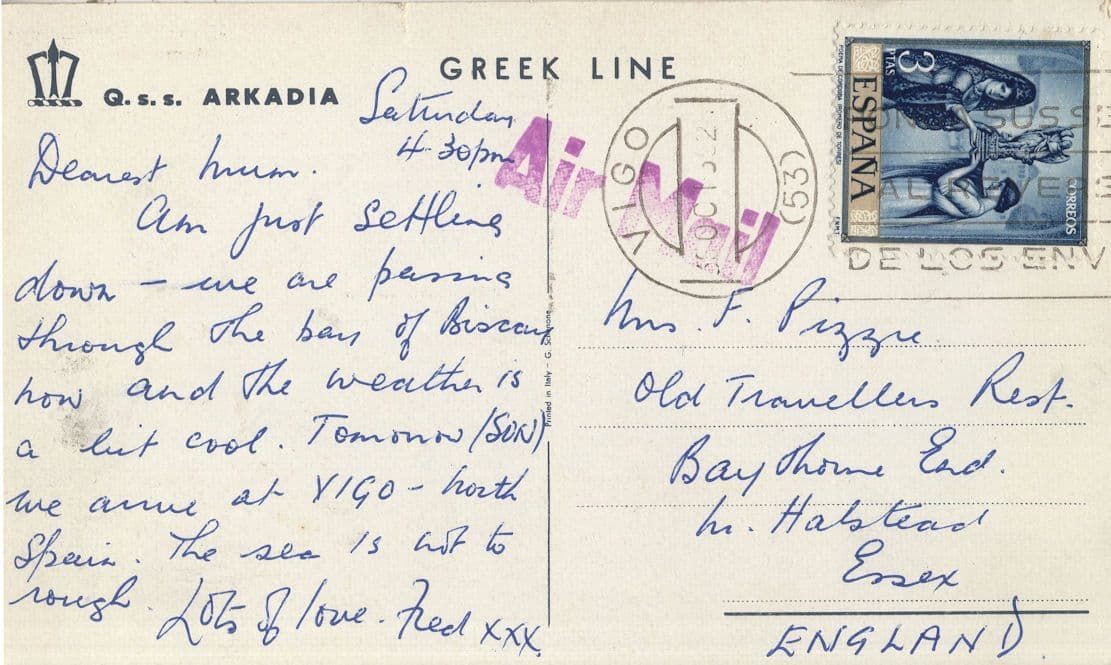 GREEK LINE
Q.S.S. ARKADIA
Saturday
4.30pm
Dearest Mum.
Am just settling
down – we are passing
through the bay of Biscay
now and the weather is
a bit cool. Tomorrow (SUN)
we arrive at VIGO – North
Spain. The sea is not to
rough. Lots of love. Fred xxx.
Printed in Italy - G.
Air Mail
VIGO
OCT
(53)
3
PTAS
ESPAÑA
CORREOS
F.N.M.T.
SUS
DE LOS ENV
Mrs. F. Pizzie.
Old Travellers Rest.
Baythorne End.
Nr. Halstead
Essex
ENGLAND